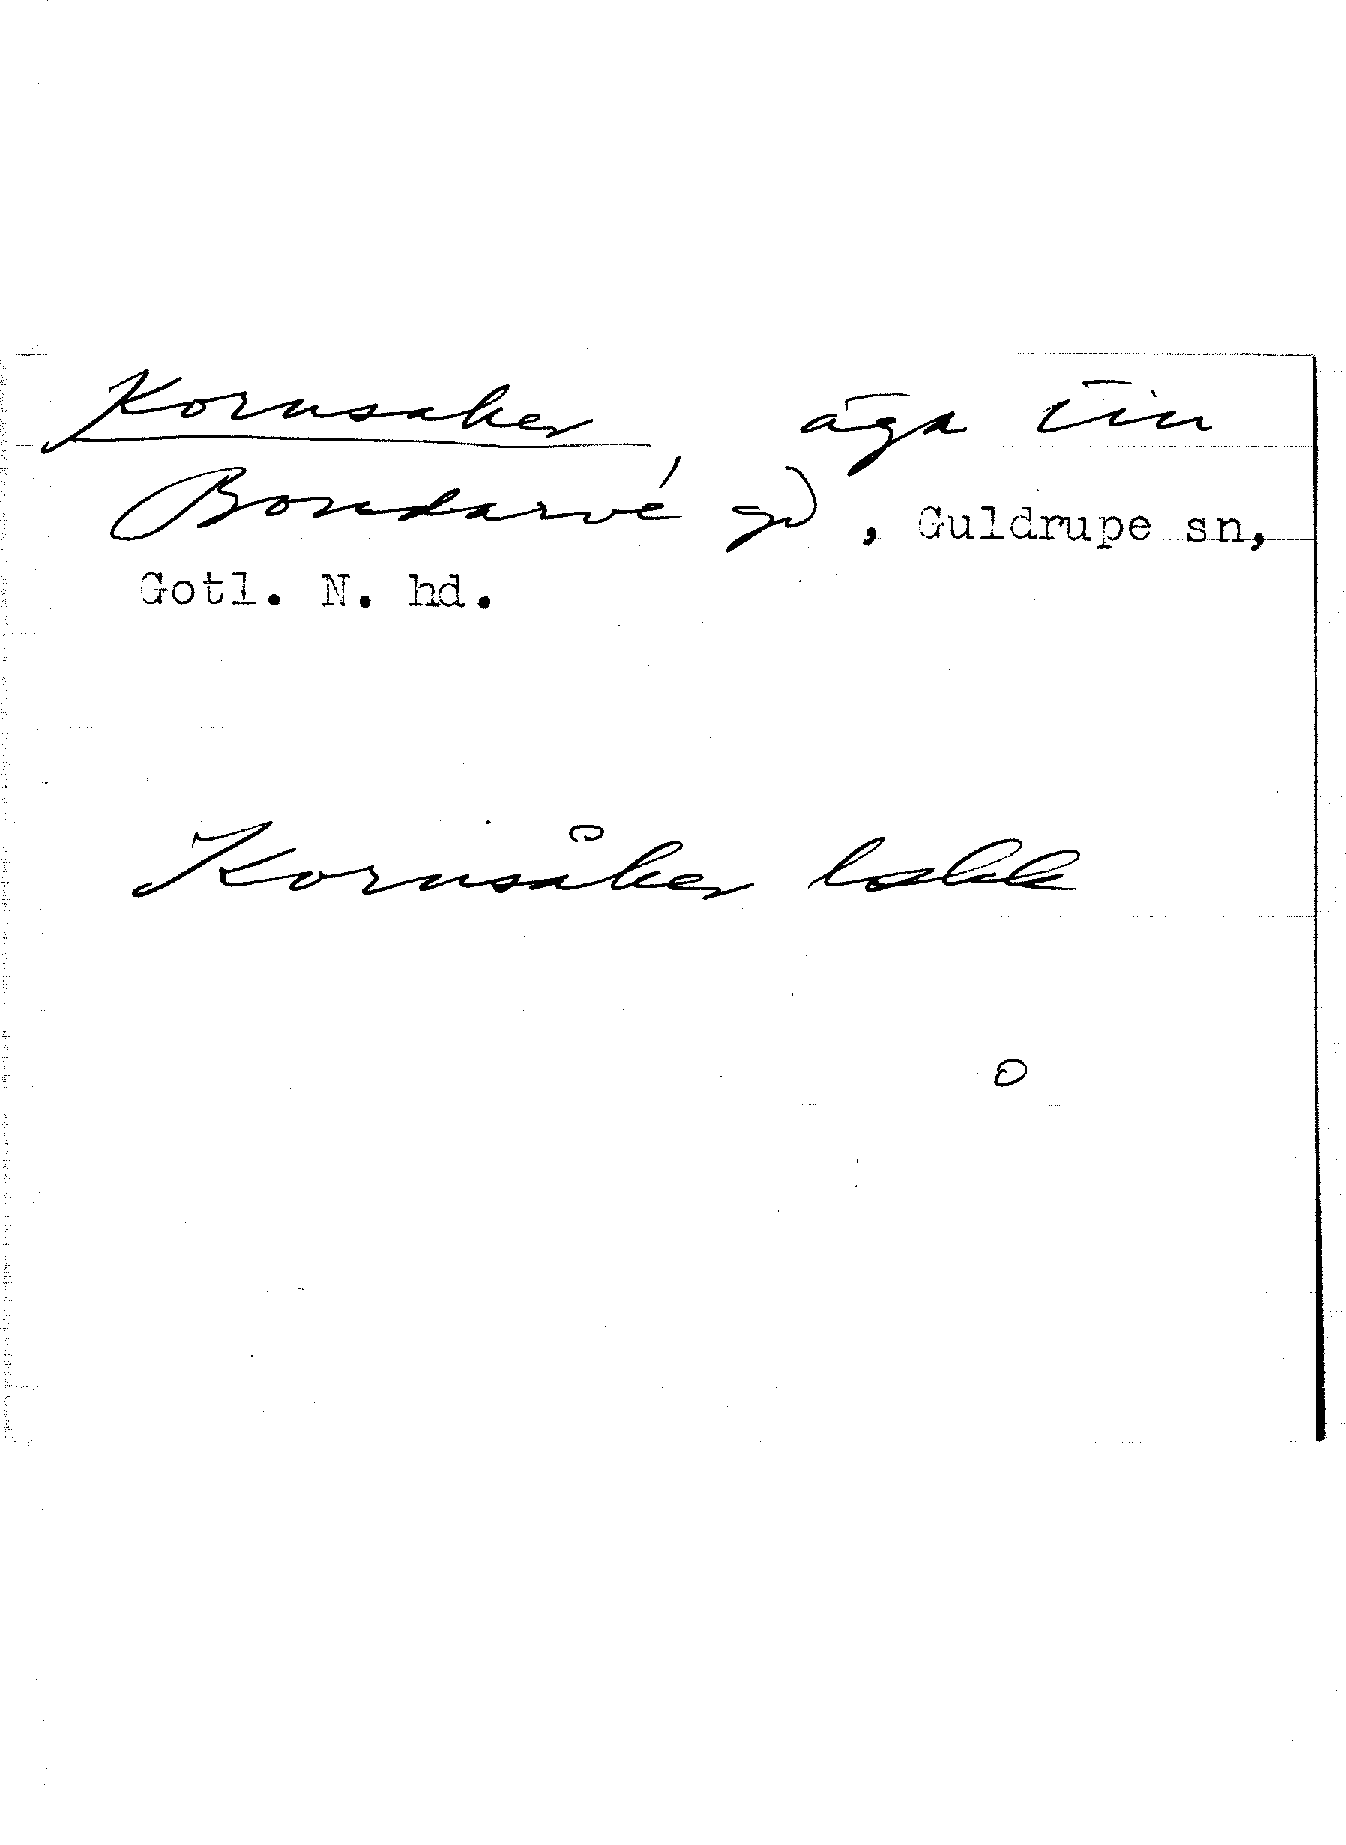 Kornsaker äga till
Bondarve gd, Guldrupe sn,
Gotl. N. hd.
Kornsåker